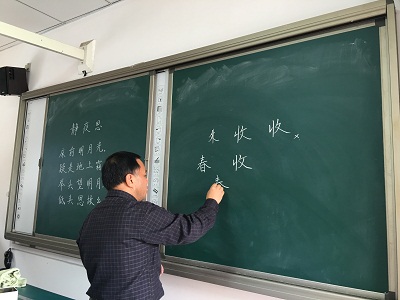 静夜思
床前明月光,
疑是地上霜
举头望明月
低头思故乡
收 收 ×
春 收